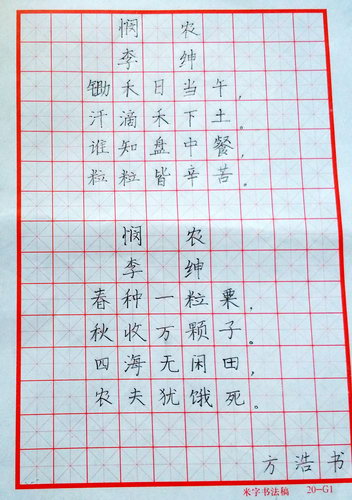 悯 农
李 绅
锄禾日当午,
汗滴禾下土。
谁知盘中餐,
粒粒皆辛苦。
悯 农
李 绅
春种一粒粟,
秋收万颗子。
四海无闲田,
农夫犹饿死。
方浩书
米字书法稿 20-G1